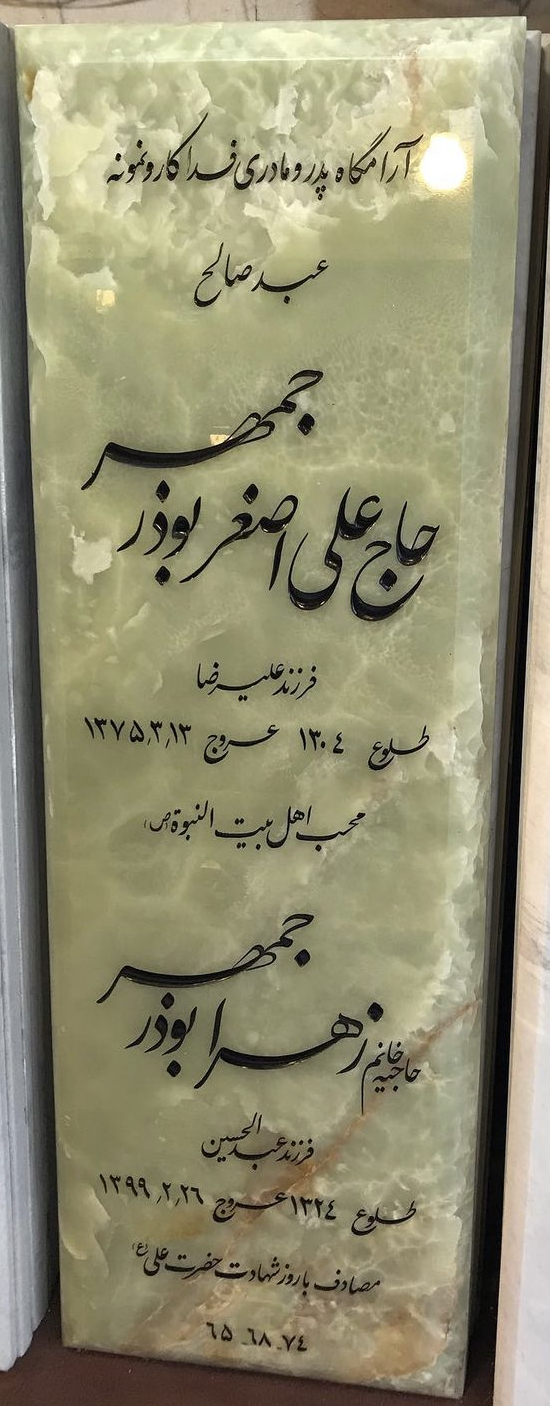 آرامگاه پدر و مادری فداکار و نمونه
عبد صالح
حاج علی اصغر بوذرجمهر
فرزند علیرضا
طلوع ۱۳۰۴ عروج ۱۳۷۵٫۳٫۱۳
محب اهل بیت النبوة (ص)
حاجیه خانم زهرا بوذرجمهر
فرزند عبدالحسین
طلوع ۱۳۲۴ عروج ۱۳۹۹٫۲٫۲۶
مصادف با روز شهادت حضرت علی (ع)
۶۵_۶۸_۷۴